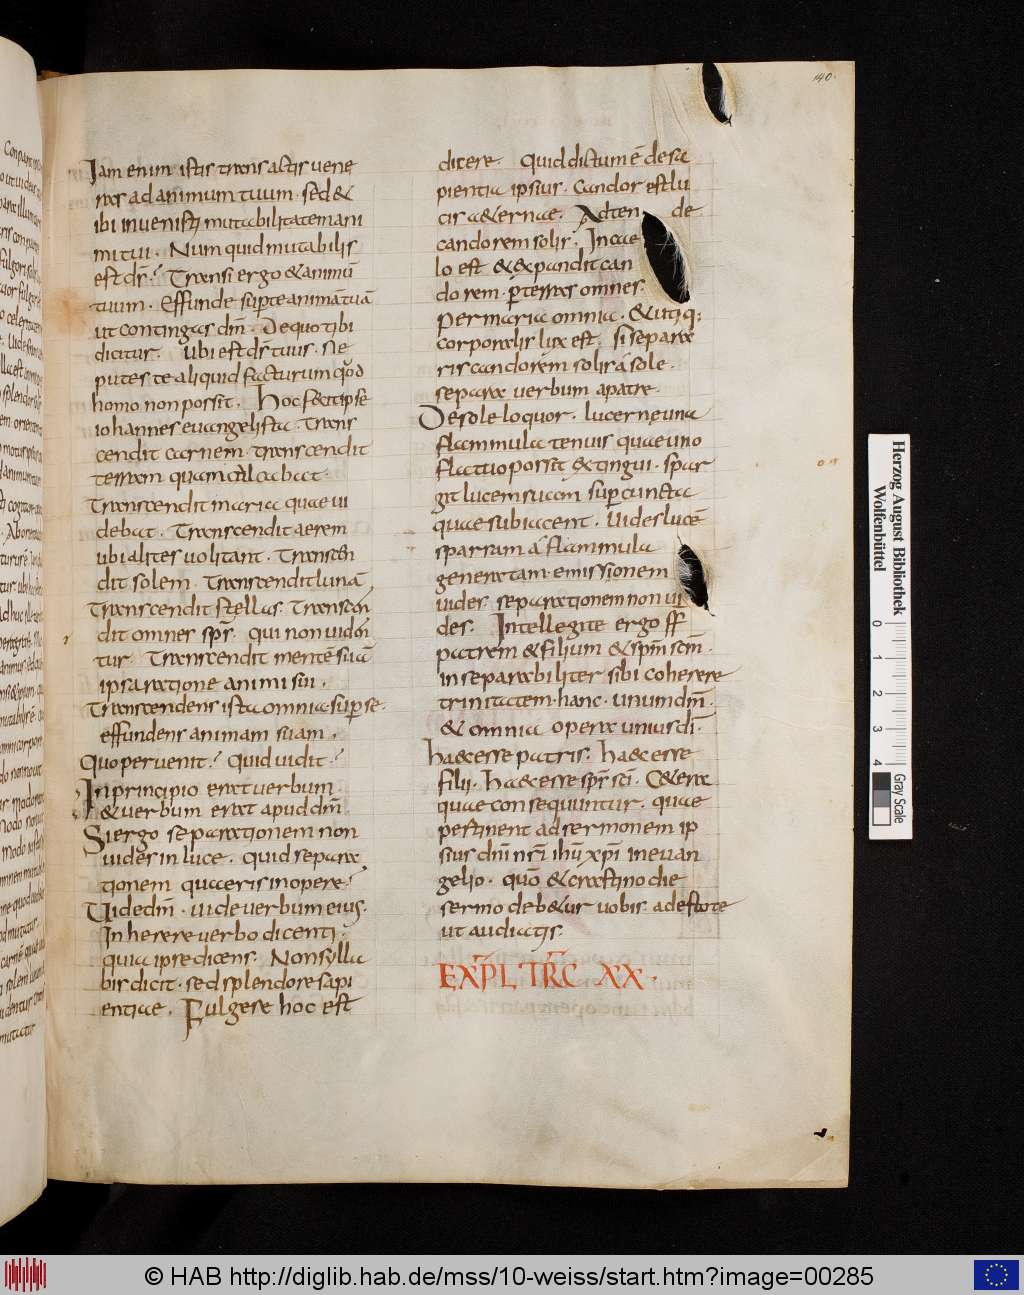 140.
Iam enim istis transactis vene
ras ad animum tuum. sed &
ibi invenisti mutabilitatem ani
mi tui. Num quid mutabilis
est dr̄? Transi ergo & animū
tuum. Effunde super te animā tuā
ut contingas dm̄. De quo tibi
dicitur. Ubi est dr̄ tuus. Ne
putes te aliquid facturum quod
homo non possit. Hoc fecit ipse
iohannes euangelista. Trans
cendit carnem. transcendit
terram quam calcabat.
Transcendit maria quae ui
debat. Transcendit aerem
ubi alites uolitant. Transcen
dit solem. Transcendit lunā
Transcendit stellas. Transcen
dit omnes spr̄. qui non uiden
tur. Transcendit mentē suā
ipsa ratione animi sui.
Transcendens ista omnia super se.
effundens animam suam.
Quo pervenit? Quid uidit?
In principio erat verbum.
& verbum erat apud dm̄.
Si ergo separationem non
uides in luce. quid separa
tionem quaeris in opere?
Vide dm̄. uide verbum eius.
Inherere verbo dicenti.
quia ipse dicens. Non sylla
bis dicit. sed splendore sapi
entiae. Fulgese hoc est
dicere Quid dictum ē de sa
pientia ipsius. Candor est lu
cis aeternae. Adten de
candorem solis. In cae
lo est & expandit can
dorem. per terras omnes.
per maria omnia. & utiq:
corporalis lux est. si separa
ris candorem solis a sole.
separa verbum a patre.
De sole loquor. lucernę una
flammula tenuis quae uno
flatuo possit extingui. spar
git lucem suam super cuncta
quae subiacent. Uides lucē
sparsam a flammula
generatam. emissionem
uides. separationem non ui
des. Intellegite ergo ff
patrem & filium & spm̄ scm̄.
inseparabiliter sibi coherere
trinitatem. hanc. unum dm̄.
& omnia opera unius dī.
haec esse patris. haec esse
filii. haec esse spr̄ scī. Cetera
quae consequuntur. quae
pertinent ad sermonem ip
sius dnī nrī ihū xpī in euan
gelio. quō & crastino die
sermo debetur uobis. adestote
ut audiatis.
EXPL TRC XX.
Herzog August Bibliothek
Wolfenbüttel
0 1 2 3 4
Gray Scale
© HAB http://diglib.hab.de/mss/10-weiss/start.htm?image=00285